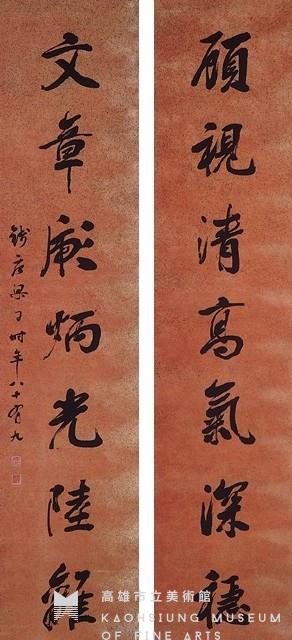 顧視清高氣深穩
文章彪炳光陸離
錢唐梁 時年八十有九
高雄市立美術館
KAOHSIUNG MUSEUM
OF FINE ARTS